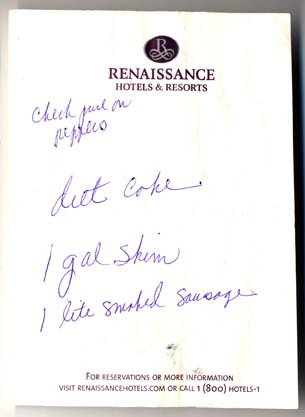 R
RENAISSANCE
HOTELS & RESORTS
Check price on
peppers
diet coke
1 gal skim
1 lite smoked sausage
FOR RESERVATIONS OR MORE INFORMATION
VISIT RENAISSANCEHOTELS.COM OR CALL 1 (800) HOTELS-1